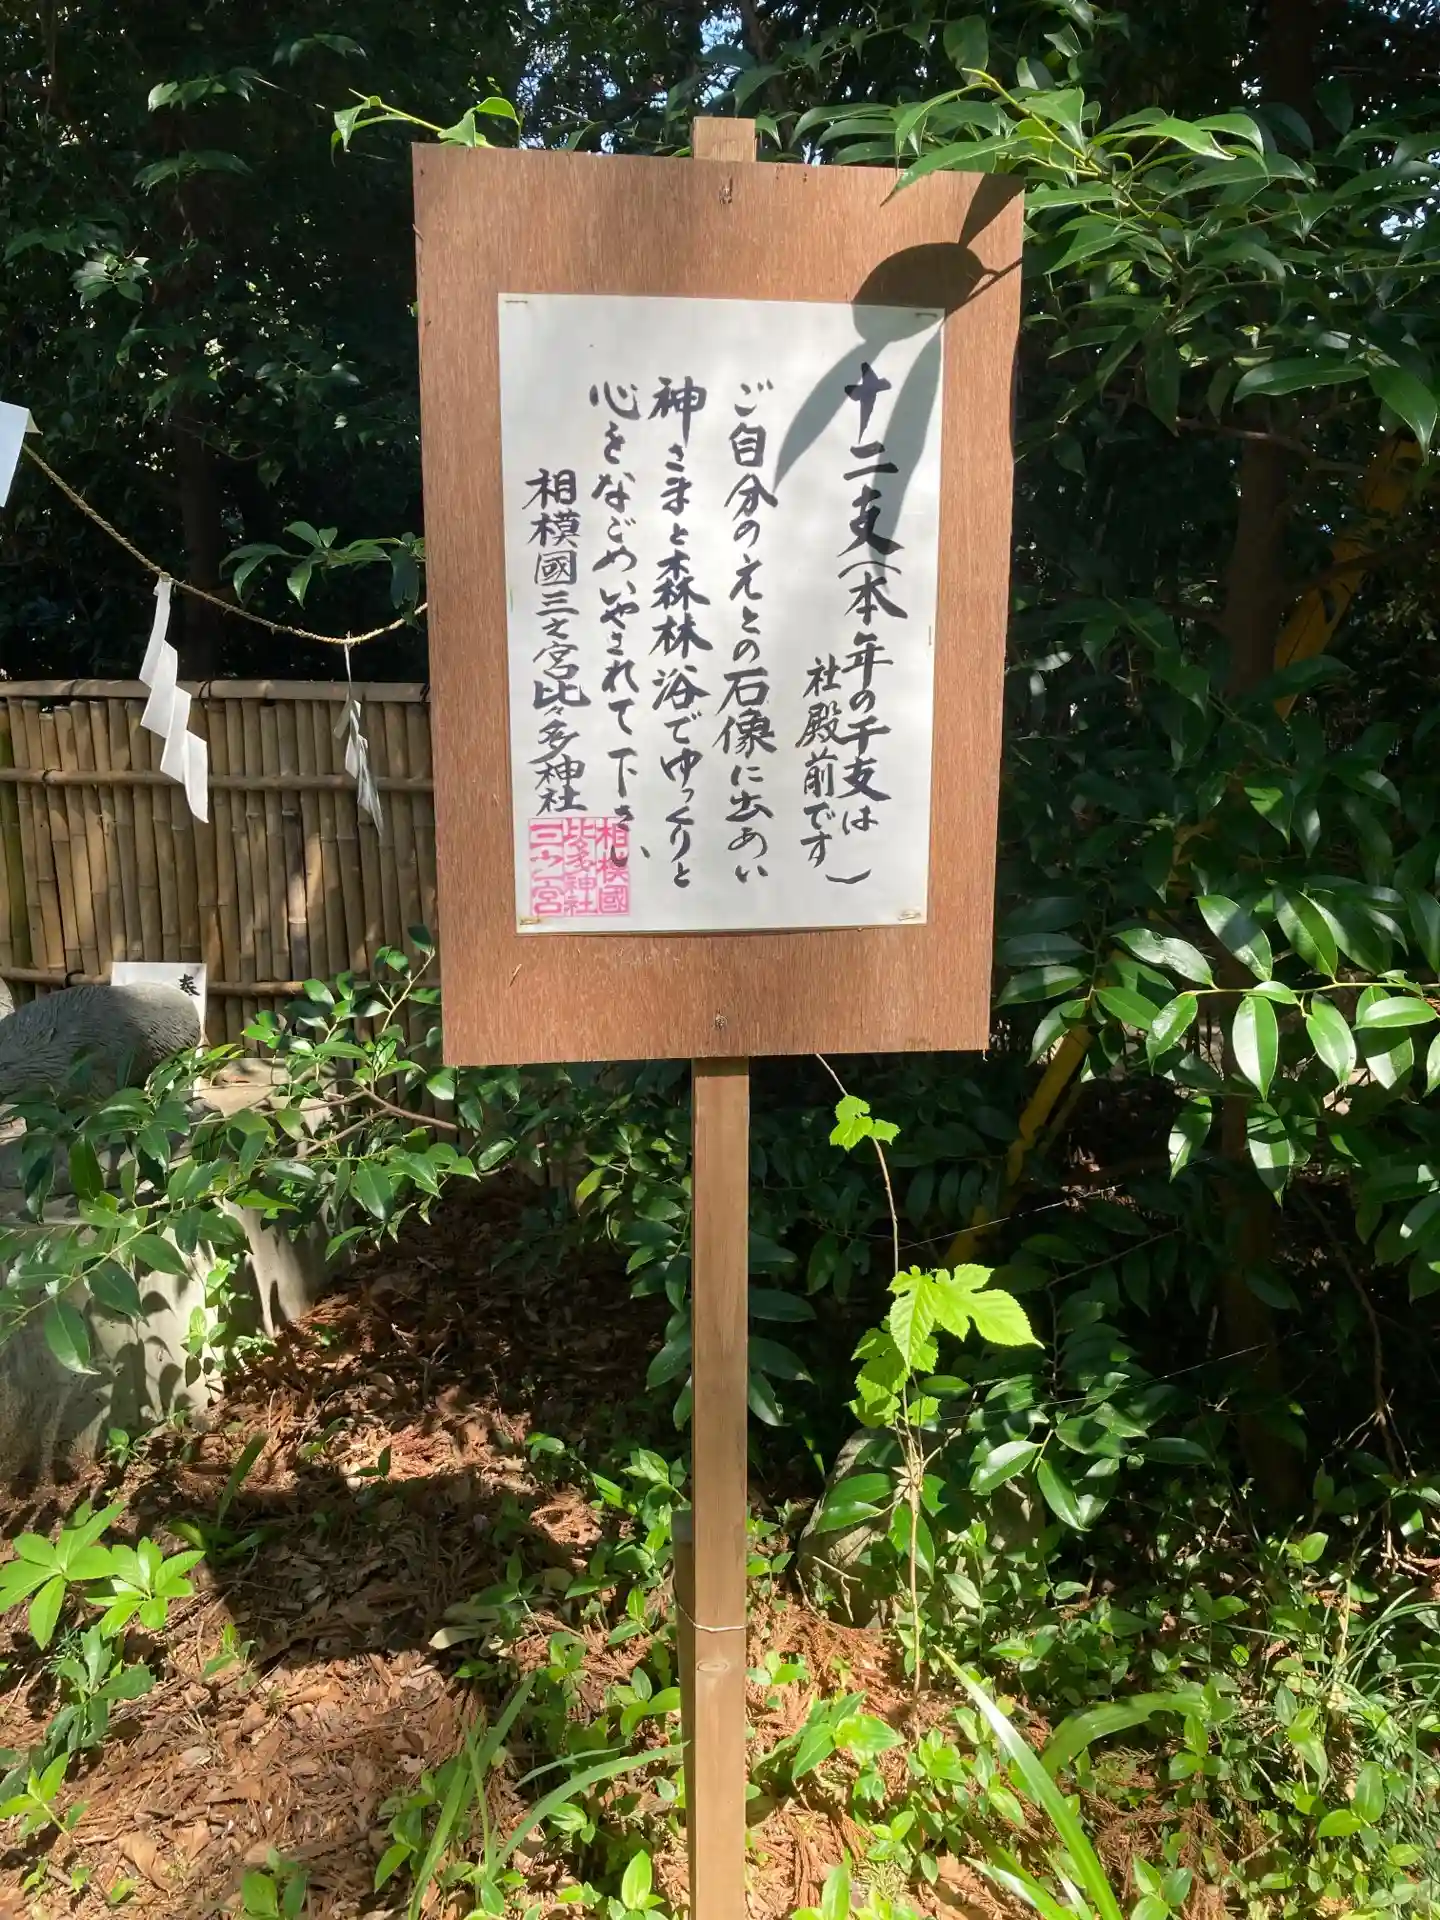 十二支(本年の干支は
社殿前です)
ご自分のえとの石像に出あい
神さまと森林浴でゆっくりと
心をなごめいやされて下さい
相模國三之宮比々多神社
相模國
比々多神社
三ノ宮
奉